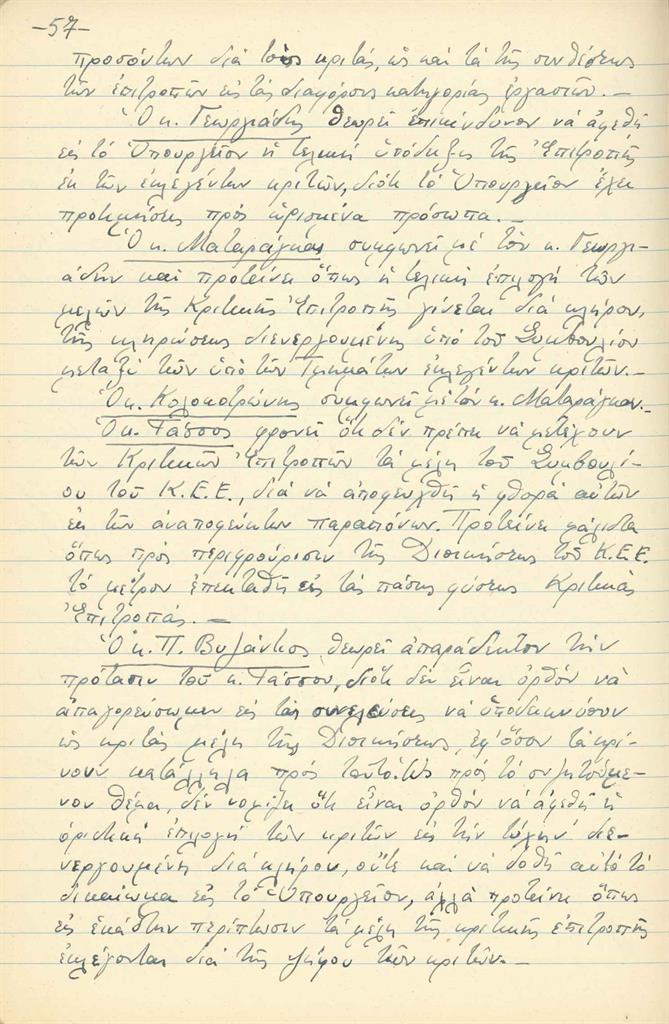 -57-
προσόντων διὰ τοὺς κριτάς, ὡς καὶ τὰ τῆς συνθέσεως
τῶν ἐπιτροπῶν εἰς τὰς διαφόρους κατηγορίας ἐργασιῶν.—
Ὁ κ. Γεωργιάδης θεωρεῖ ἐπικίνδυνον νὰ ἀφεθῇ
εἰς τὸ Ὑπουργεῖον ἡ τελικὴ ὑπόδειξις τῆς Ἐπιτροπῆς
ἐκ τῶν ἐκλεγέντων κριτῶν, διότι τὸ Ὑπουργεῖον ἔχει
προτιμήσεις πρὸς ὡρισμένα πρόσωπα.—
Ὁ κ. Ματαράγκας συμφωνεῖ μὲ τὸν κ. Γεωργι-
άδην καὶ προτείνει ὅπως ἡ τελικὴ ἐπιλογὴ τῶν
μελῶν τῆς Κριτικῆς Ἐπιτροπῆς γίνεται διὰ κλήρου,
τῆς κληρώσεως διενεργουμένης ὑπὸ τοῦ Συμβουλίου
μεταξὺ τῶν ὑπὸ τῶν Τμημάτων ἐκλεγέντων κριτῶν.—
Ὁ κ. Κολοκοτρώνης συμφωνεῖ μὲ τὸν κ. Ματαράγκαν.
Ὁ κ. Τάσσος φρονεῖ ὅτι δὲν πρέπει νὰ μετέχουν
τῶν Κριτικῶν Ἐπιτροπῶν τὰ μέλη τοῦ Συμβουλί-
ου τοῦ Κ.Ε.Ε., διὰ νὰ ἀποφευχθῇ ἡ φθορὰ αὐτῶν
ἐκ τῶν ἀναποφεύκτων παραπόνων. Προτείνει μάλιστα
ὅπως πρὸς περιφρούρισιν τῆς Διοικήσεως τοῦ Κ.Ε.Ε.
τὸ μέτρον ἐπεκταθῇ εἰς τὰς πάσης φύσεως Κριτικὰς
Ἐπιτροπάς.—
Ὁ κ. Π. Βυζάντιος θεωρεῖ ἀπαράδεκτον τὴν
πρότασιν τοῦ κ. Τάσσου, διότι δὲν εἶναι ὀρθὸν νὰ
ἀπαγορεύσωμεν εἰς τὰς συνελεύσεις νὰ ὑποδεικνύουν
ὡς κριτὰς μέλη τῆς Διοικήσεως, ἐφ' ὅσον τὰ κρί-
νουν κατάλληλα πρὸς τοῦτο. Ὡς πρὸς τὸ συζητούμε-
νον θέμα, δὲν νομίζει ὅτι εἶναι ὀρθὸν νὰ ἀφεθῇ ἡ
ὁριστικὴ ἐπιλογὴ τῶν κριτῶν εἰς τὴν τύχην διε-
νεργουμένη διὰ κλήρου, οὔτε καὶ νὰ δοθῇ αὐτὸ τὸ
δικαίωμα εἰς τὸ Ὑπουργεῖον, ἀλλὰ προτείνει ὅπως
εἰς ἑκάστην περίπτωσιν τὰ μέλη τῆς κριτικῆς ἐπιτροπῆς
ἐκλέγονται διὰ τῆς ψήφου τῶν κριτῶν.—